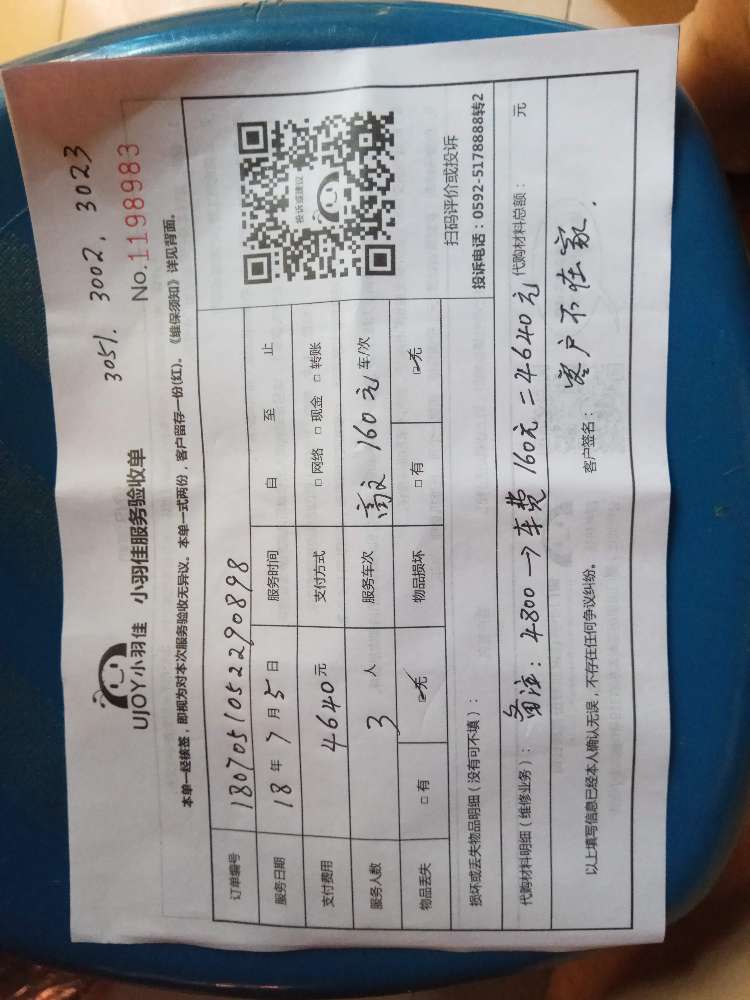 3051. 3002. 3023
UJOY小羽佳 小羽佳服务验收单
No.1198983
本单一经核签，即视为对本次服务验收无异议。本单一式两份，客户留存一份(红)。《维保须知》详见背面。
订单编号 1807051052290898
服务日期 18年7月5日 服务时间 自 至 止
支付费用 4640元 支付方式 □网络 □现金 □转账
服务人数 3人 服务车次 160元 车/次
物品丢失 □有 □无 物品损坏 □有 □无
投诉或建议
UJOY
扫码评价或投诉
投诉电话：0592-5178888转2
损坏或丢失物品明细（没有可不填）：
代购材料明细（维修业务）： 备注：4800→车费160元=4640元 代购材料总额： 元
以上填写信息已经本人确认无误，不存在任何争议纠纷。 客户签名： 客户不在家.